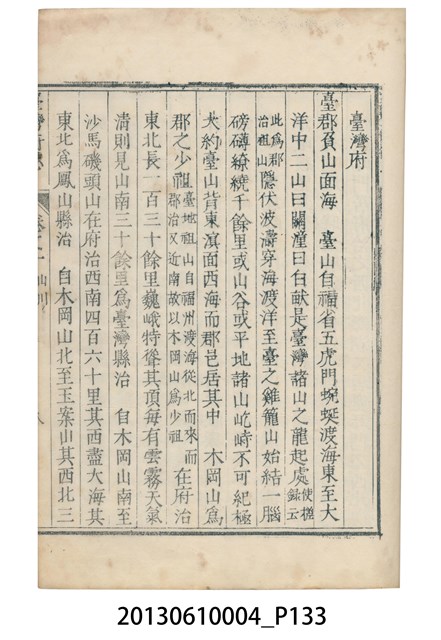 臺灣府
臺郡負山面海 臺山自福省五虎門蜿蜒渡海東至大
洋中二山曰關潼曰白畎是臺灣諸山之龍起處使槎錄云
此為郡治祖山隱伏波濤穿海渡洋至臺之雞籠山始結一腦
磅礴繚繞千餘里或山谷或平地諸山屹峙不可紀極
大約臺山背東溟面西海而郡邑居其中 木岡山為
郡之少祖臺地祖山自福州渡海從北而來而郡治又近南故以木岡山為少祖 在府治
東北長二百三十餘里巍峨特聳其頂每有雲霧天氣
清則見山南三十餘里為臺灣縣治 自木岡山南至
沙馬磯頭山在府治西南四百六十里其西盡大海其
東北為鳳山縣治 自木岡山北至玉案山其西北三
20130610004_P133